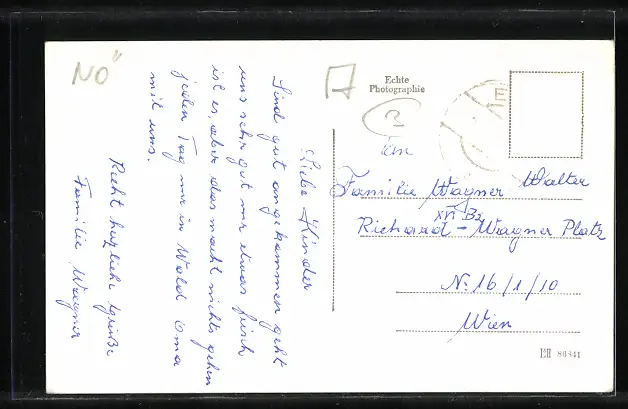 NO"
Liebe Kinder
Sind gut angekommen geht
uns sehr gut nur etwas frisch
ist es, aber das macht nichts gehen
jeden Tag nur in Wald Oma
mit uns.
Recht herzliche Grüße
Familie Wagner
Echte
Photographie
Familie Wagner Walter
XVI Bz
Richard-Wagner Platz
Nº 16/1/10
Wien
86841